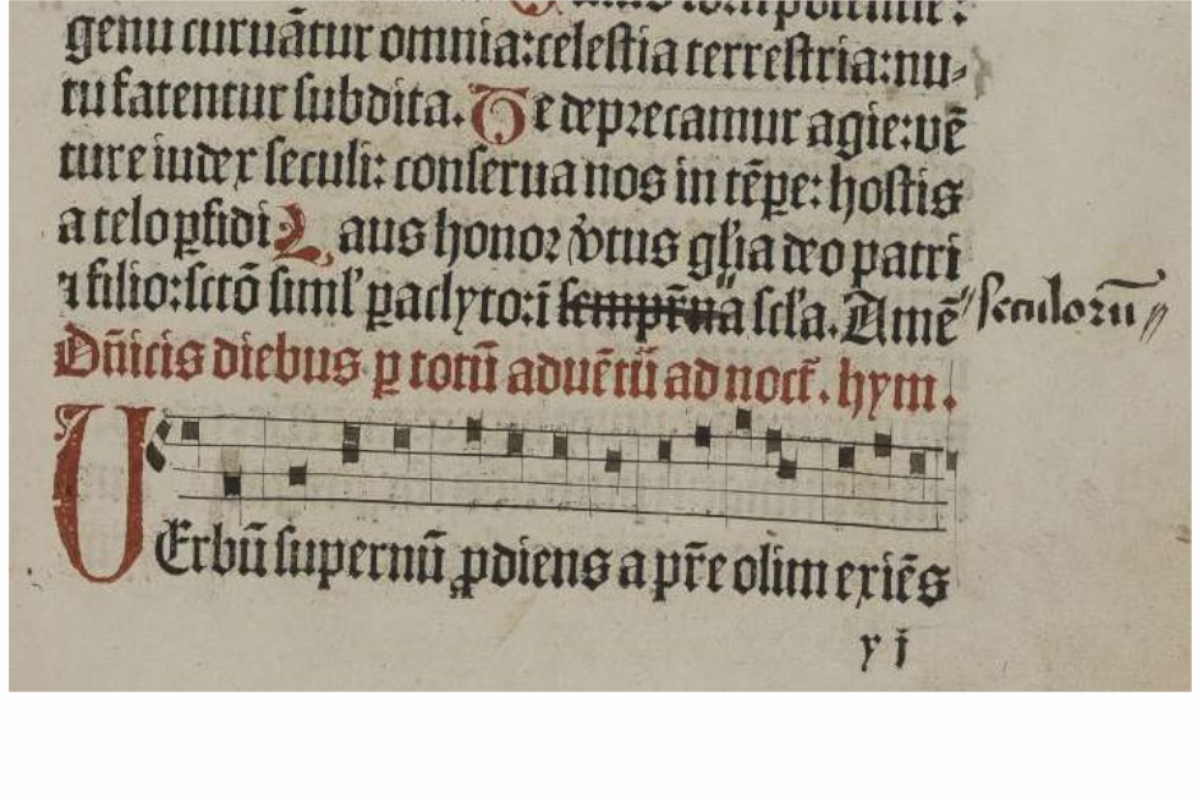 genu curuãtur omnia:celestia terrestria:nu-
tu fatentur subdita. Te deprecamur agie:vẽ
ture iudex seculi: conserua nos in tẽꝑe: hostis
a telo ꝑfidi Laus honor v̾tus gl̾ia deo patri
⁊ filio:sctõ siml̾ ꝑaclyto:ĩ sempr̃na scl̾a. Amẽ "seculorũ"
Dñicis diebus ꝑ totũ aduẽtũ ad noct̃. hym.
VErbũ supernũ ꝓdiens a pr̃e olim exiẽs
xi